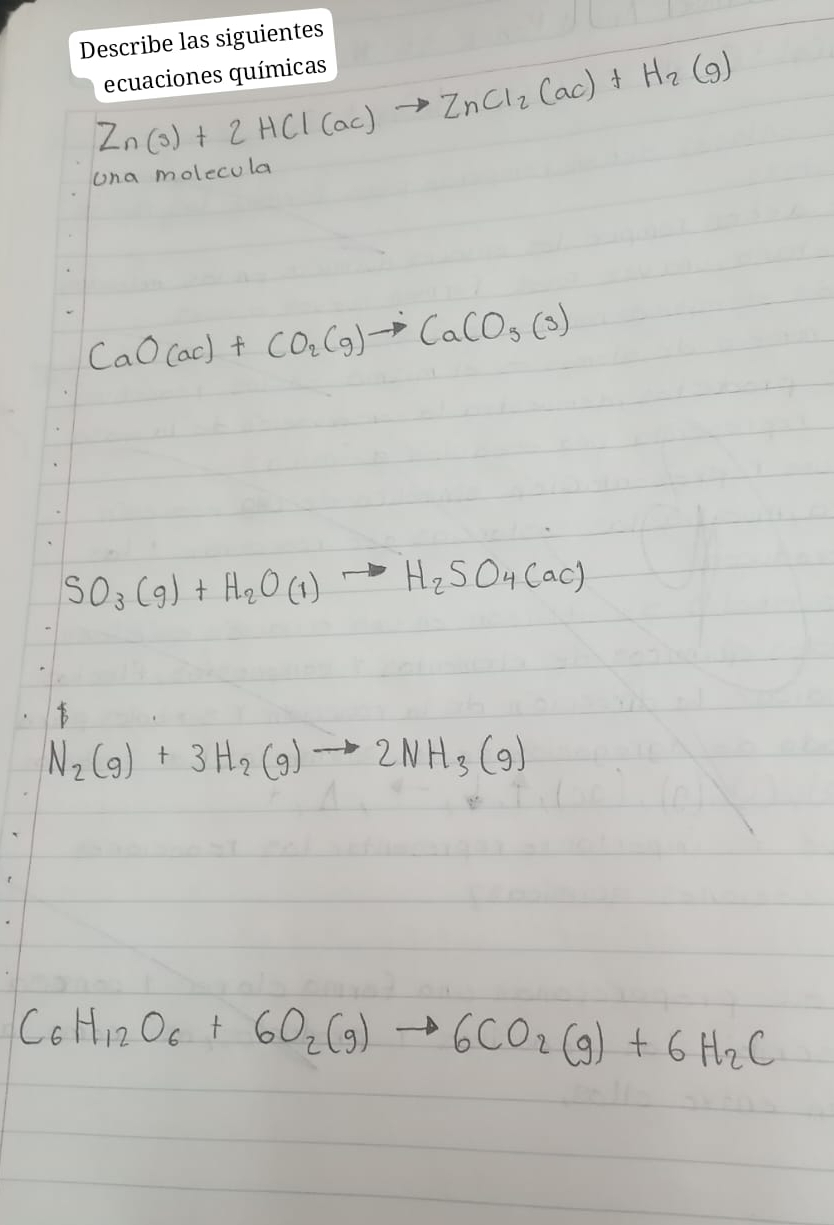 Describe las siguientes
ecuaciones químicas
Zn(s) + 2 HCl (ac) → ZnCl₂ (ac) + H₂ (g)
una molecula
CaO(ac) + CO₂(g) → CaCO₃(s)
SO₃(g) + H₂O(l) → H₂SO₄(ac)
N₂(g) + 3H₂(g) → 2NH₃(g)
C₆H₁₂O₆ + 6O₂(g) → 6CO₂(g) + 6H₂C